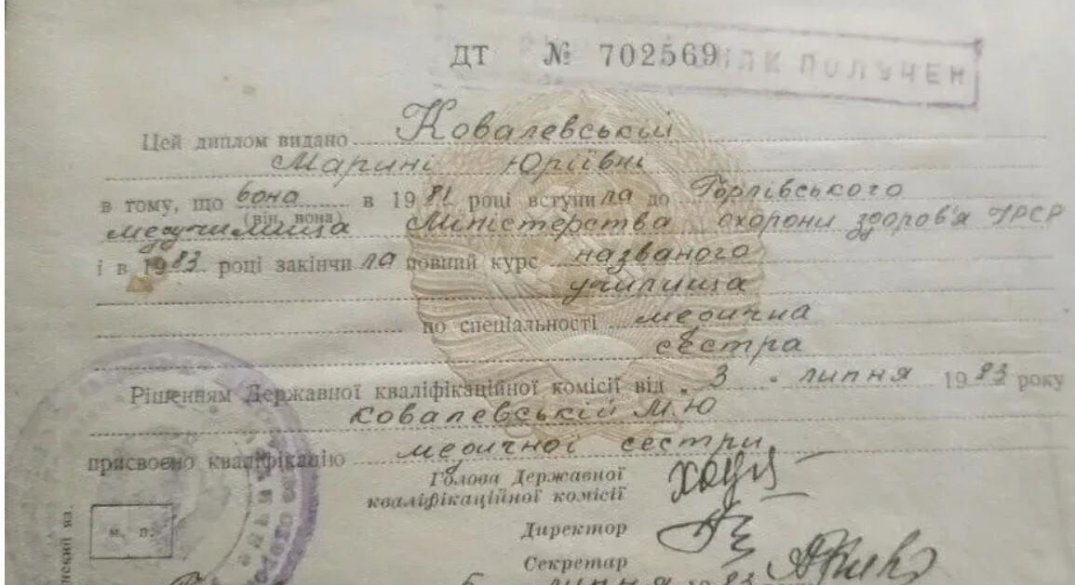 ДТ № 702569
ПОЛУЧЕН
Цей диплом видано Ковалевській
Марині Юріївні
в тому, що вона в 1981 році вступила до Горлівського
(він, вона)
медучилища Міністерства охорони здоров'я УРСР
і в 1983 році закінчила повний курс названого
училища
по спеціальності медична
сестра
Рішенням Державної кваліфікаційної комісії від „3" липня 1983 року
Ковалевській М.Ю
присвоєно кваліфікацію медичної сестри
Голова Державної
кваліфікаційної комісії
Директор
м. п.
Секретар
липня 1983